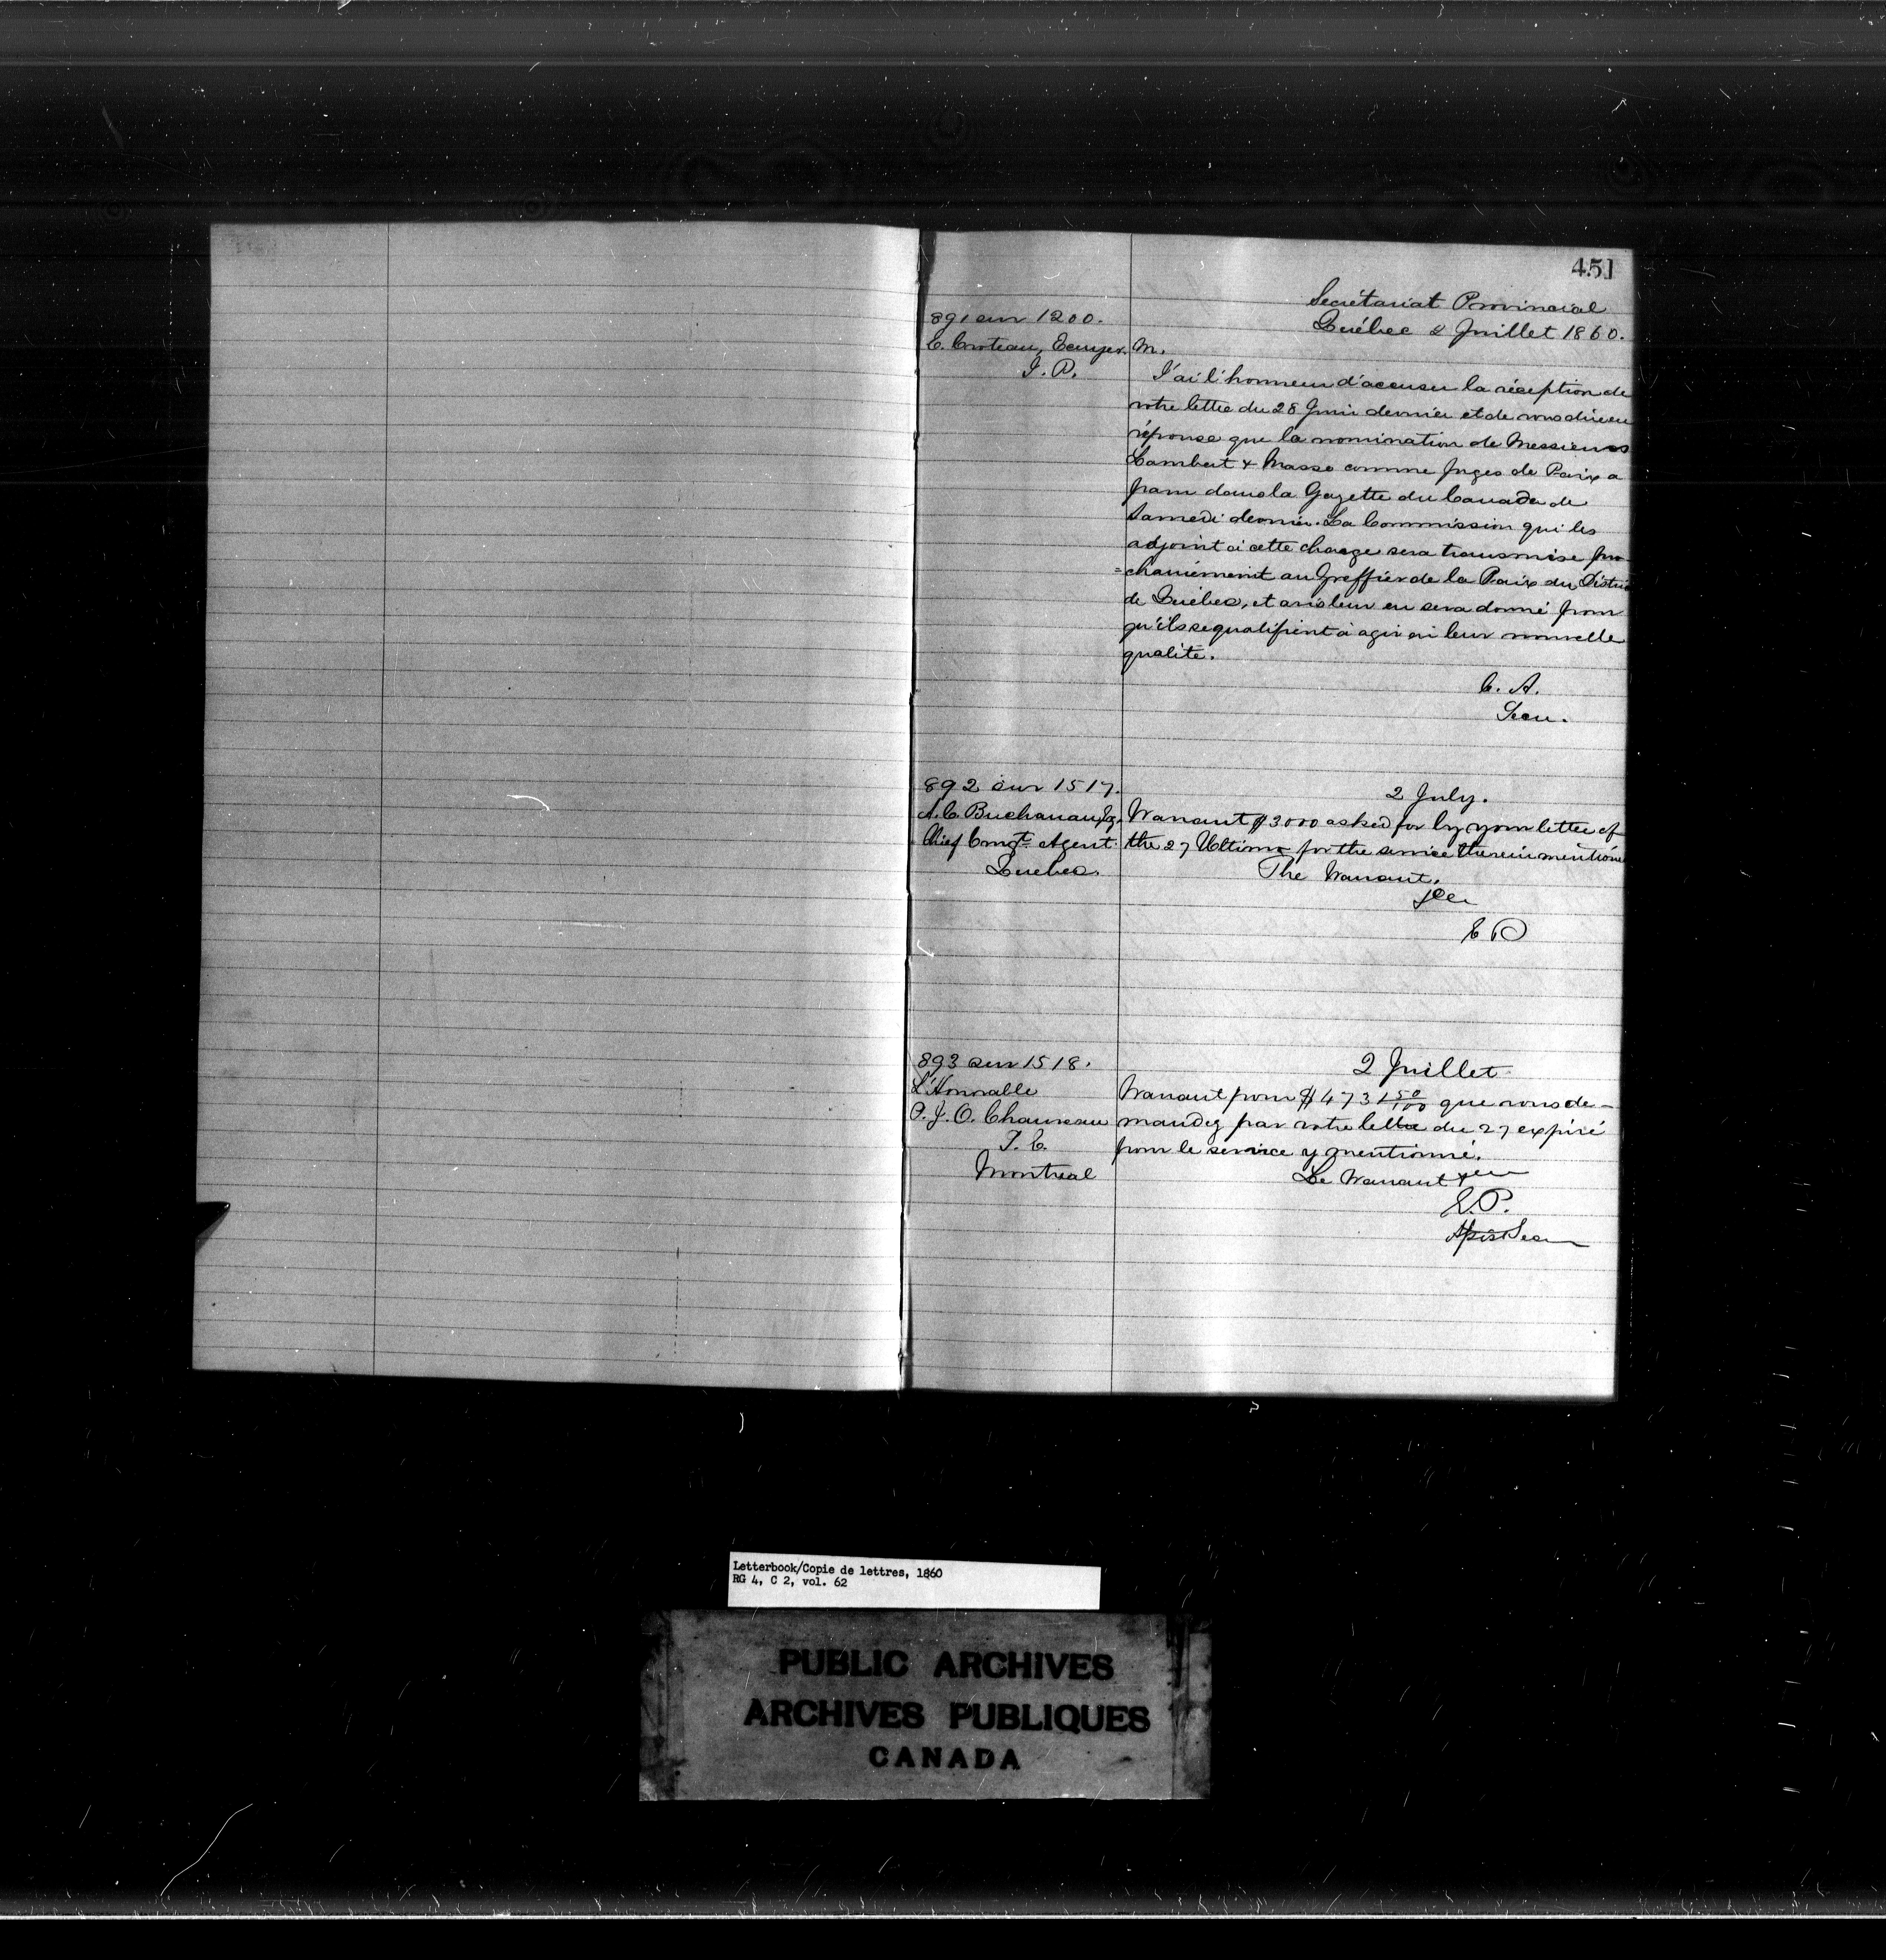 451
Secrétariat Provincial
Québec 2 Juillet 1860.
891 sur 1200.
C. Croteau, Ecuyer.
J. P.
M.
J'ai l'honneur d'accuser la réception de
votre lettre du 28 Juin dernier et de vous dire en
réponse que la nomination de Messieurs
Lambert & Masse comme Juges de Paix a
paru dans la Gazette du Canada de
Samedi dernier. La Commission qui les
adjoint à cette charge sera transmise pro
=chainement au Greffier de la Paix du District
de Québec, et avis leur en sera donné pour
qu'ils se qualifient à agir en leur nouvelle
qualité.
C. A.
Secu.
892 sur 1517.
A. C. Buchanan, Esq.
Chief Emigt Agent
Quebec.
2 July.
Warrant $3000 asked for by your letter of
the 27 Ultimo for the service therein mentione
The Warrant,
E P
893 sur 1518.
L'Honorable
P. J. O. Chauveau
S. E.
Montreal
2 Juillet
Warrant pour $4731 50/100 que vous de-
mandez par votre lettre du 27 expiré
pour le service y mentionné.
Le Warrant
E. P.
Letterbook/Copie de lettres, 1860
RG 4, C 2, vol. 62
PUBLIC ARCHIVES
ARCHIVES PUBLIQUES
CANADA